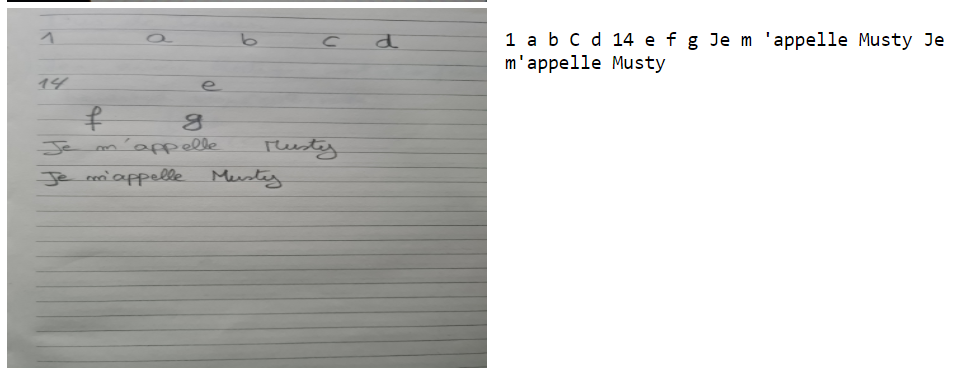 1 a b c d
14 e
f g
Je m'appelle Musty
Je m'appelle Musty
1 a b C d 14 e f g Je m 'appelle Musty Je
m'appelle Musty